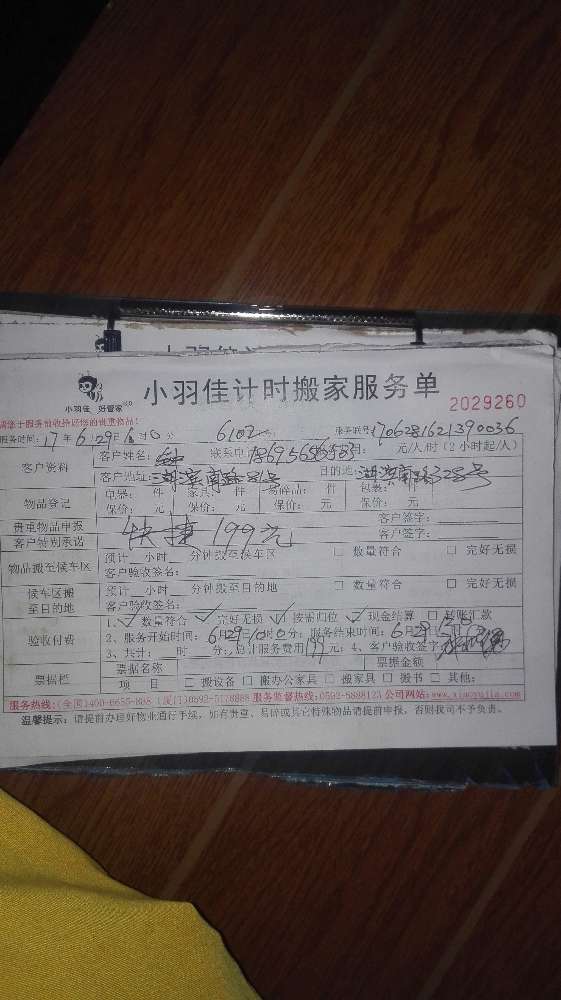 小羽佳 好管家
小羽佳计时搬家服务单
2029260
服务时间：17年6月29日 时0分 6102 服务账号：1706281621390036
客户资料
客户姓名： 联系电话： 元/人/时(2小时起/人)
客户地址：湖滨南路81号 目的地：湖滨南路328号
物品登记
包裹： 件 家具： 件 易碎品： 件 包裹： 件
保价： 元 保价： 元 保价： 元 保价： 元
贵重物品申报 客户签字：
客户特别承诺 快捷 199元 客户签字：
物品搬至候车区
预计 小时 分钟搬至候车区 □ 数量符合 □ 完好无损
客户验收签名：
候车区搬至目的地
预计 小时 分钟搬至目的地 □ 数量符合 □ 完好无损
客户验收签名：
验收付费
1、 数量符合 完好无损 按需归位 现金结算 □ 转账汇款
2、服务开始时间：6月29日10时0分；服务结束时间：6月29日
3、共计： 时 分；总计服务费用 元；4、客户验收签字
票据栏
票据名称 票据金额
项 目 □ 搬设备 □ 搬办公家具 □ 搬家具 □ 搬书 □ 其他：
服务监督热线：0592-5888123 公司网站：www.xiaoyujia.com
温馨提示：请提前办理好物业通行手续，如有贵重、易碎或其它特殊物品请提前申报，否则我司不予负责。